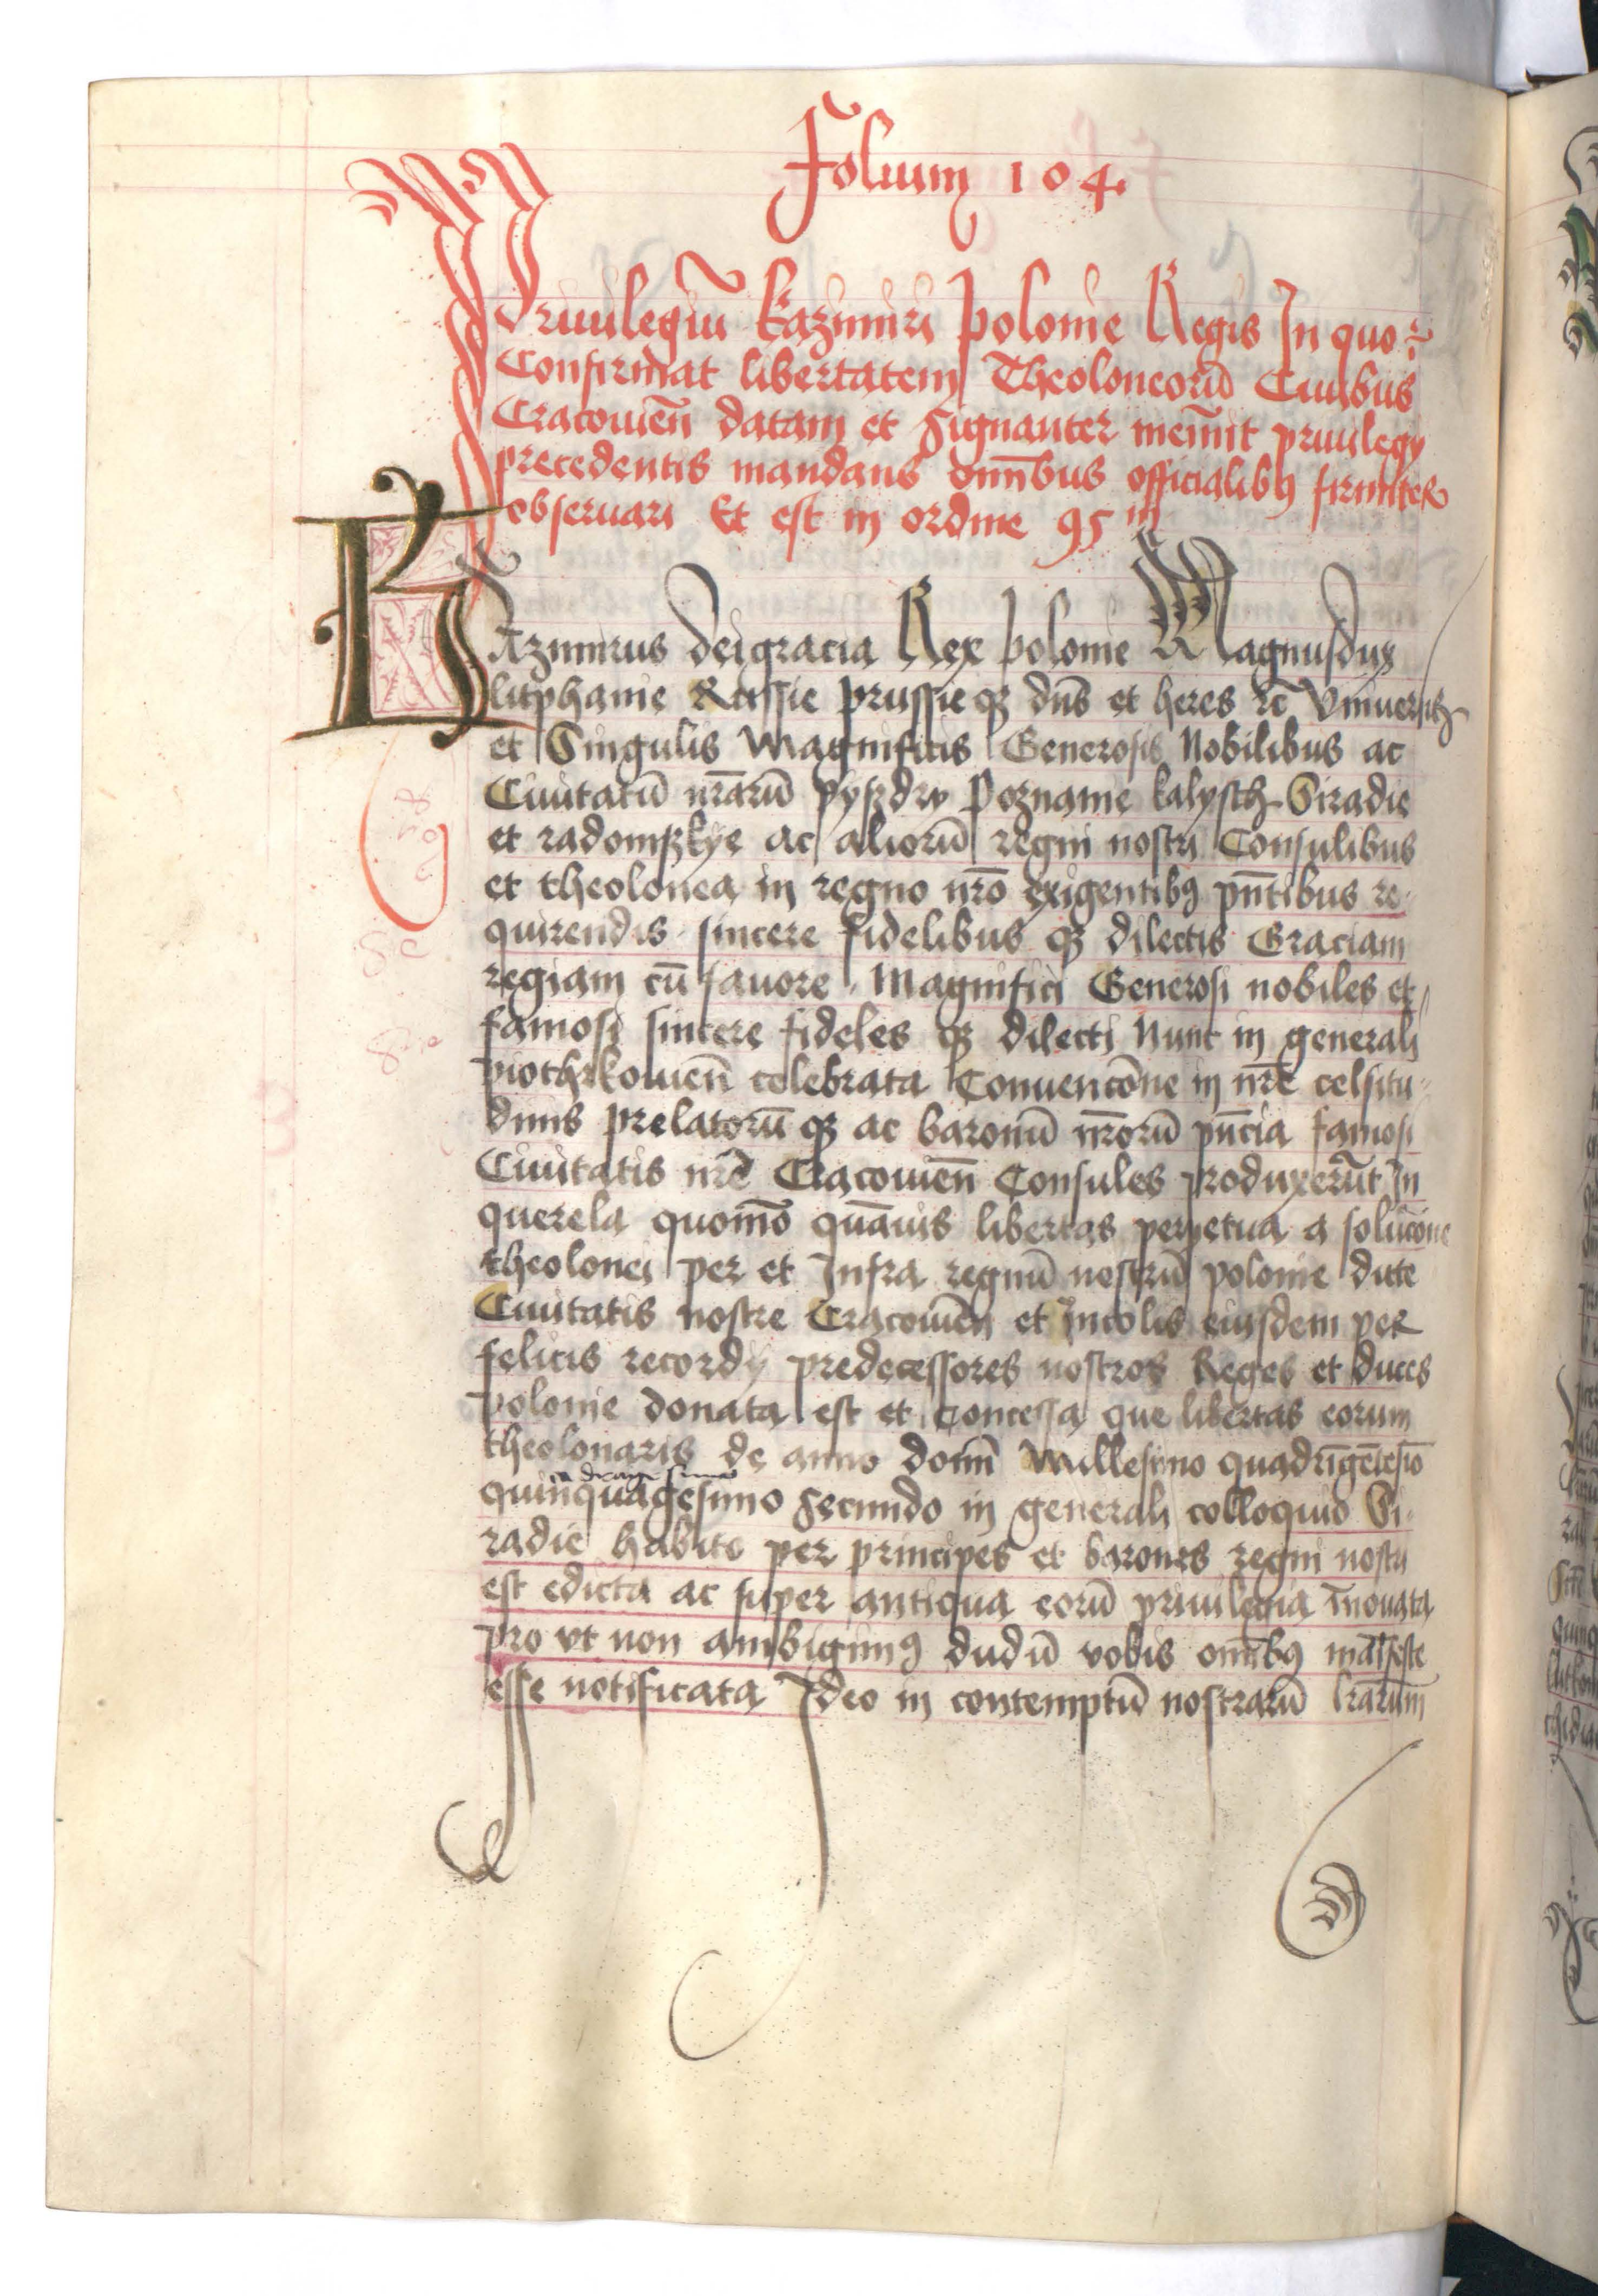 Folium 104.
Priuilegiū Kazimiri Polonie Regis In quo
Confirmat libertatem Theoloneorū Ciuibus
Cracouień datam et signanter memīt priuilegij
precedentis mandans om̄ibus officialibꝯ firmiter
obseruari Et est in ordine 95
Kazimirus dei gracia Rex polonie Magnus dux
litphanie Russie prussie qꝫ dn̄s et heres ꝛc̄ Vniuersis
et Singulis Magnificis Generosis Nobilibus ac
Ciuitatū nr̄arū pyszdry Poznanie kalysch Siradie
et radomskye ac aliorū regni nostri Consulibus
et theolonea in regno nr̄o exigentibꝯ pn̄tibus re
quirendis sincere fidelibus qꝫ dilectis Graciam
regiam cū fauore Magnifici Generosi nobiles et
famosi sincere fideles qꝫ dilecti Nunc in generali
piothrkouień celebrata Conuencōne in nr̄e celsitu
dinis prelatorū qꝫ ac baronū nr̄orū pn̄cia famosi
Ciuitatis nr̄e Cracouień Consules produxerūt In
querela quomō quāuis libertas perpetua a solucōne
theolonei per et Infra regnū nostrū polonie dicte
Ciuitatis nostre Cracouień et Incolis eiusdem per
felicis recordij predecessores nostros Reges et duces
polonie donata est et concessa que libertas eorum
theolonaris de anno domī Millesimo quadrīgētēsīo
adragesimo
quinquagesimo secundo in generali colloquio Si
radie habito per principes et barones regni nostri
est edicta ac super antiqua eorū priuilegia īnouata
pro vt non ambigimꝯ dudū vobis om̄ibꝯ māifeste
esse notificata Ideo in contemptū nostrarū lr̄arum